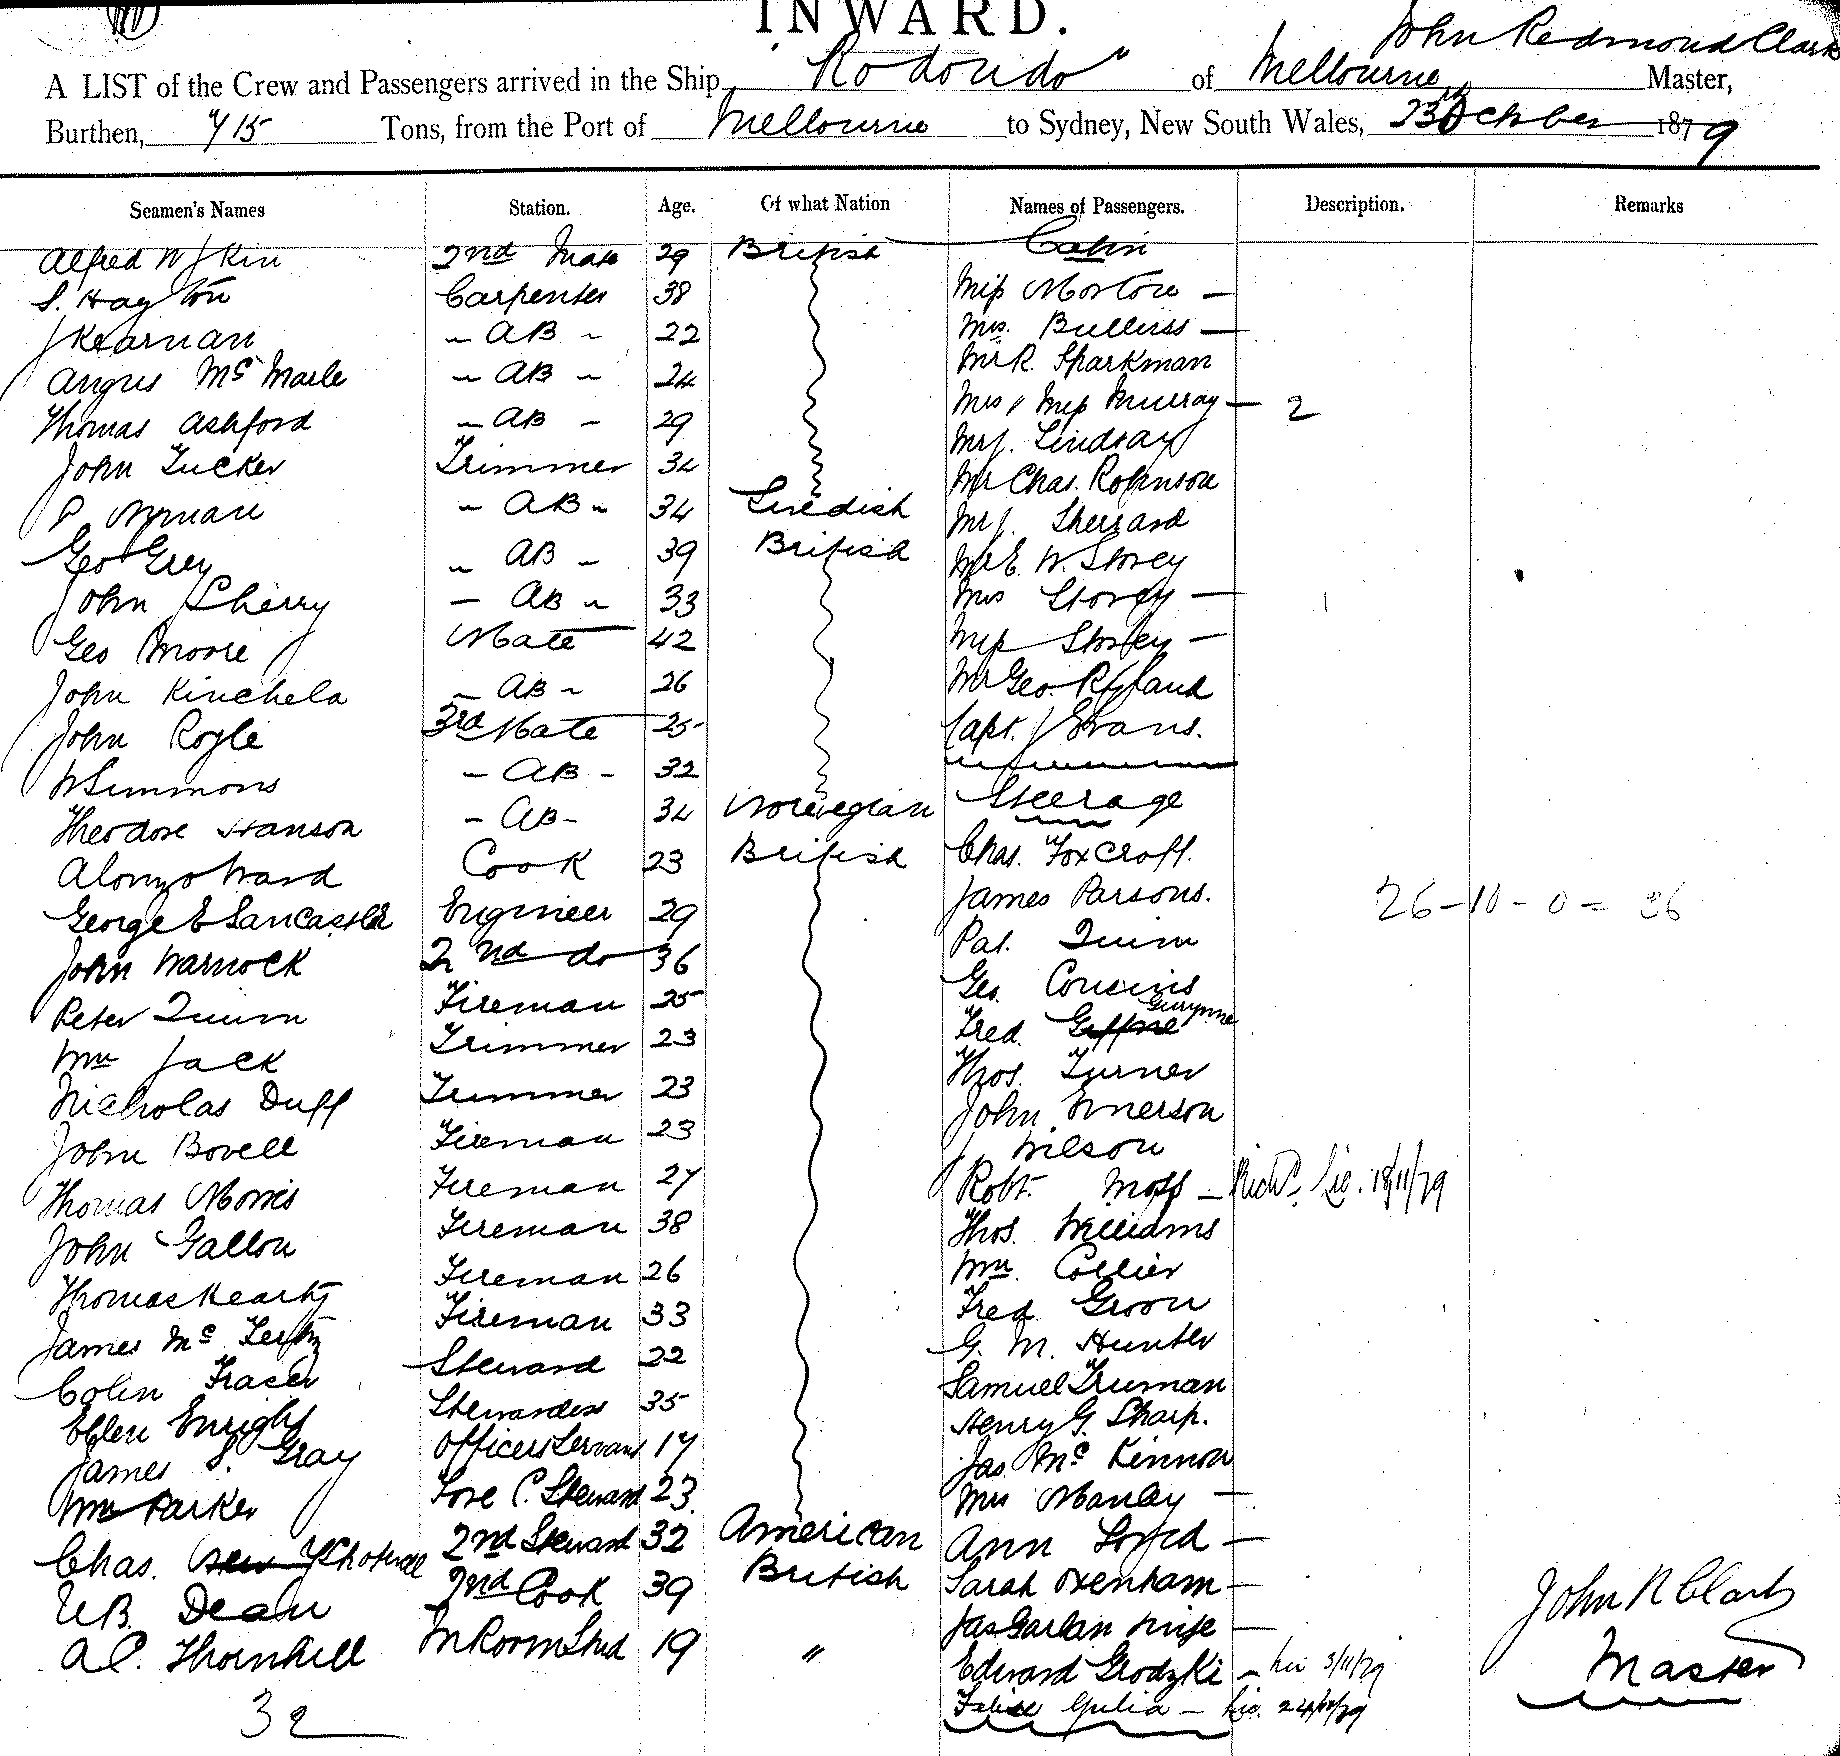 INWARD.
John Redmond Clark
A LIST of the Crew and Passengers arrived in the Ship "Rodondo" of Melbourne Master,
Burthen, 715 Tons, from the Port of Melbourne to Sydney, New South Wales, 23rd October 1879
Seamen's Names Station. Age. Of what Nation Names of Passengers. Description. Remarks
Alfred 2nd Mate 29 British Cabin
S. Hayton Carpenter 38 Miss Morton —
J Kearnan " AB " 22 Mrs. —
Angus Mc " AB " 24 Mr R. Sparkman
Thomas Ashford " AB " 29 Mrs & Miss Murray — 2
John Tucker Trimmer 34 Mr J. Lindsay
P. Nyman " AB " 34 Swedish Mr Chas. Robinson
Geo Grey " AB " 39 British Mr J. Sherrard
John Sherry " AB " 33 Mr E. W. Storey
Geo Moore Mate 42 Mrs Storey —
John Kinchela " AB " 26 Miss Storey —
John Royle 3rd Mate 25 Mr Geo.
W Simmons " AB " 32 Capt. J Evans.
Theodore Hanson " AB " 34 Norwegian Steerage
Alonzo Ward Cook 23 British Chas. Foxcroft.
George E Lancaster Engineer 29 James Parsons. 26-10-0 = 36
John Warnock 2nd do 36 Pat. Quinn
Peter Quinn Fireman 25 Geo. Cousins
Wm Jack Trimmer 23 Fred. Gwynne
Nicholas Duff Trimmer 23 Thos. Turner
John Bovell Fireman 23 John Emerson
Thomas Morris Fireman 27 J Wilson
John Gallon Fireman 38 Robt. Moss — Lic. 18/11/79
Thomas Fireman 26 Thos. Williams
James Mc Fireman 33 Wm. Collier
Colin Fraser Steward 22 Fred
Ellen Enright Stewardess 35 G. M. Hunter
James S. Gray Officers Servant 17 Samuel Truman
Wm Parker Fore C. Steward 23 Henry G. Sharp.
Chas. 2nd Steward 32 American Jas. Mc Kinnon
U.B. Dean 2nd Cook 39 British Mrs Manley —
A.C. Thornhill M Room Stwd 19 " Ann —
Sarah Oxenham —
Jas wife —
Edward Grodzki — Lic 3/11/79
Giulia — Lic. 24/10/79
32
John R Clark
Master